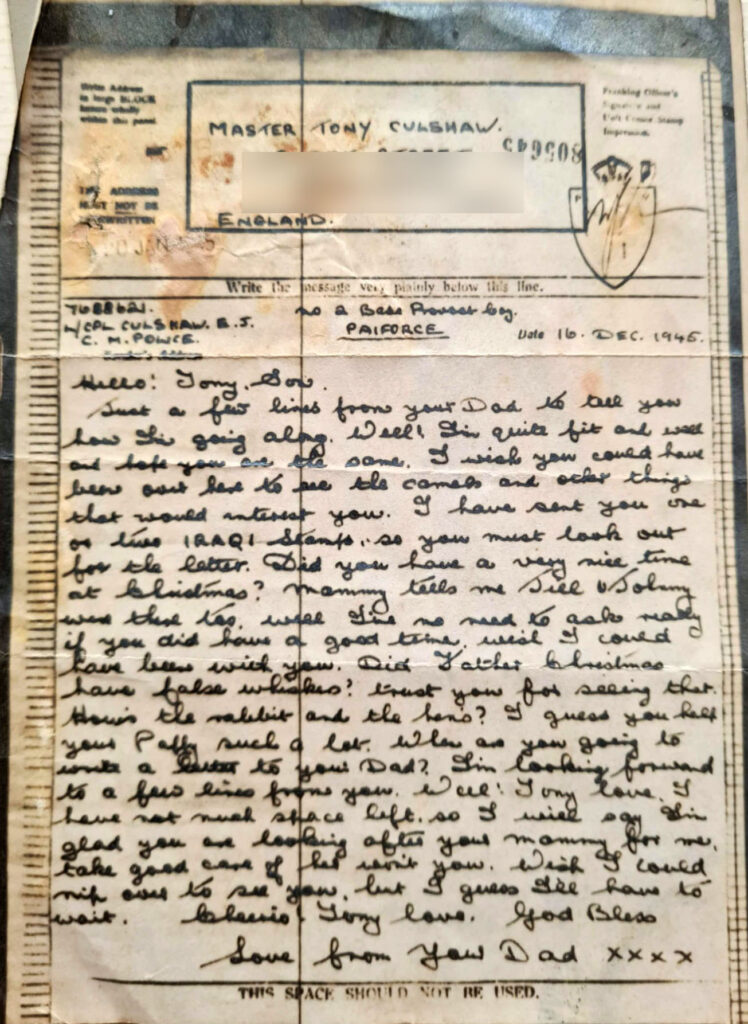 Write Address
in large BLOCK
letters wholly
within this panel
THE ADDRESS
MUST NOT BE
TYPEWRITTEN
MASTER TONY CULSHAW.
805645
ENGLAND.
Franking Officer's
Signature and
Unit Censor Stamp
Impression.
Write the message very plainly below this line.
7688621.
L/CPL CULSHAW. E. J.
C. M. POLICE.
No 2 Base Provost Coy.
PAIFORCE
Date 16. DEC. 1945.
Hello! Tony, Son.
Just a few lines from your Dad to tell you
how I'm going along. Well! I'm quite fit and well
and hope you are the same. I wish you could have
been over here to see the camels and other things
that would interest you. I have sent you one
or two IRAQI Stamps, so you must look out
for the letter. Did you have a very nice time
at Christmas? Mammy tells me Jill & Johnny
were there too, well I've no need to ask really
if you did have a good time, wish I could
have been with you. Did Father Christmas
have false whiskers? trust you for seeing that.
How's the rabbit and the hens? I guess you help
your such a lot. When are you going to
write a letter to your Dad? I'm looking forward
to a few lines from you. Well! Tony love, I
have not much space left, so I will say I'm
glad you are looking after your mammy for me,
take good care of her won't you. Wish I could
nip over to see you, but I guess I'll have to
wait. Cheerio! Tony love. God Bless
Love from Your Dad xxxx
THIS SPACE SHOULD NOT BE USED.